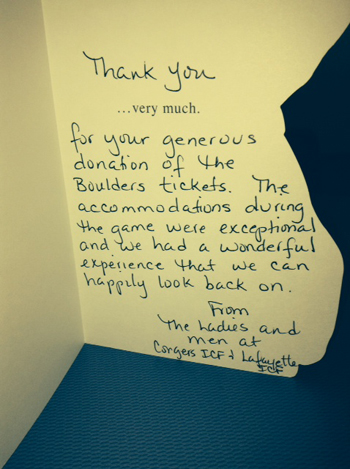 Thank you
...very much.
for your generous
donation of the
Boulders tickets. The
accommodations during
the game were exceptional
and we had a wonderful
experience that we can
happily look back on.
From
The Ladies and
men at
Corgers ICF & Lafayette
ICF